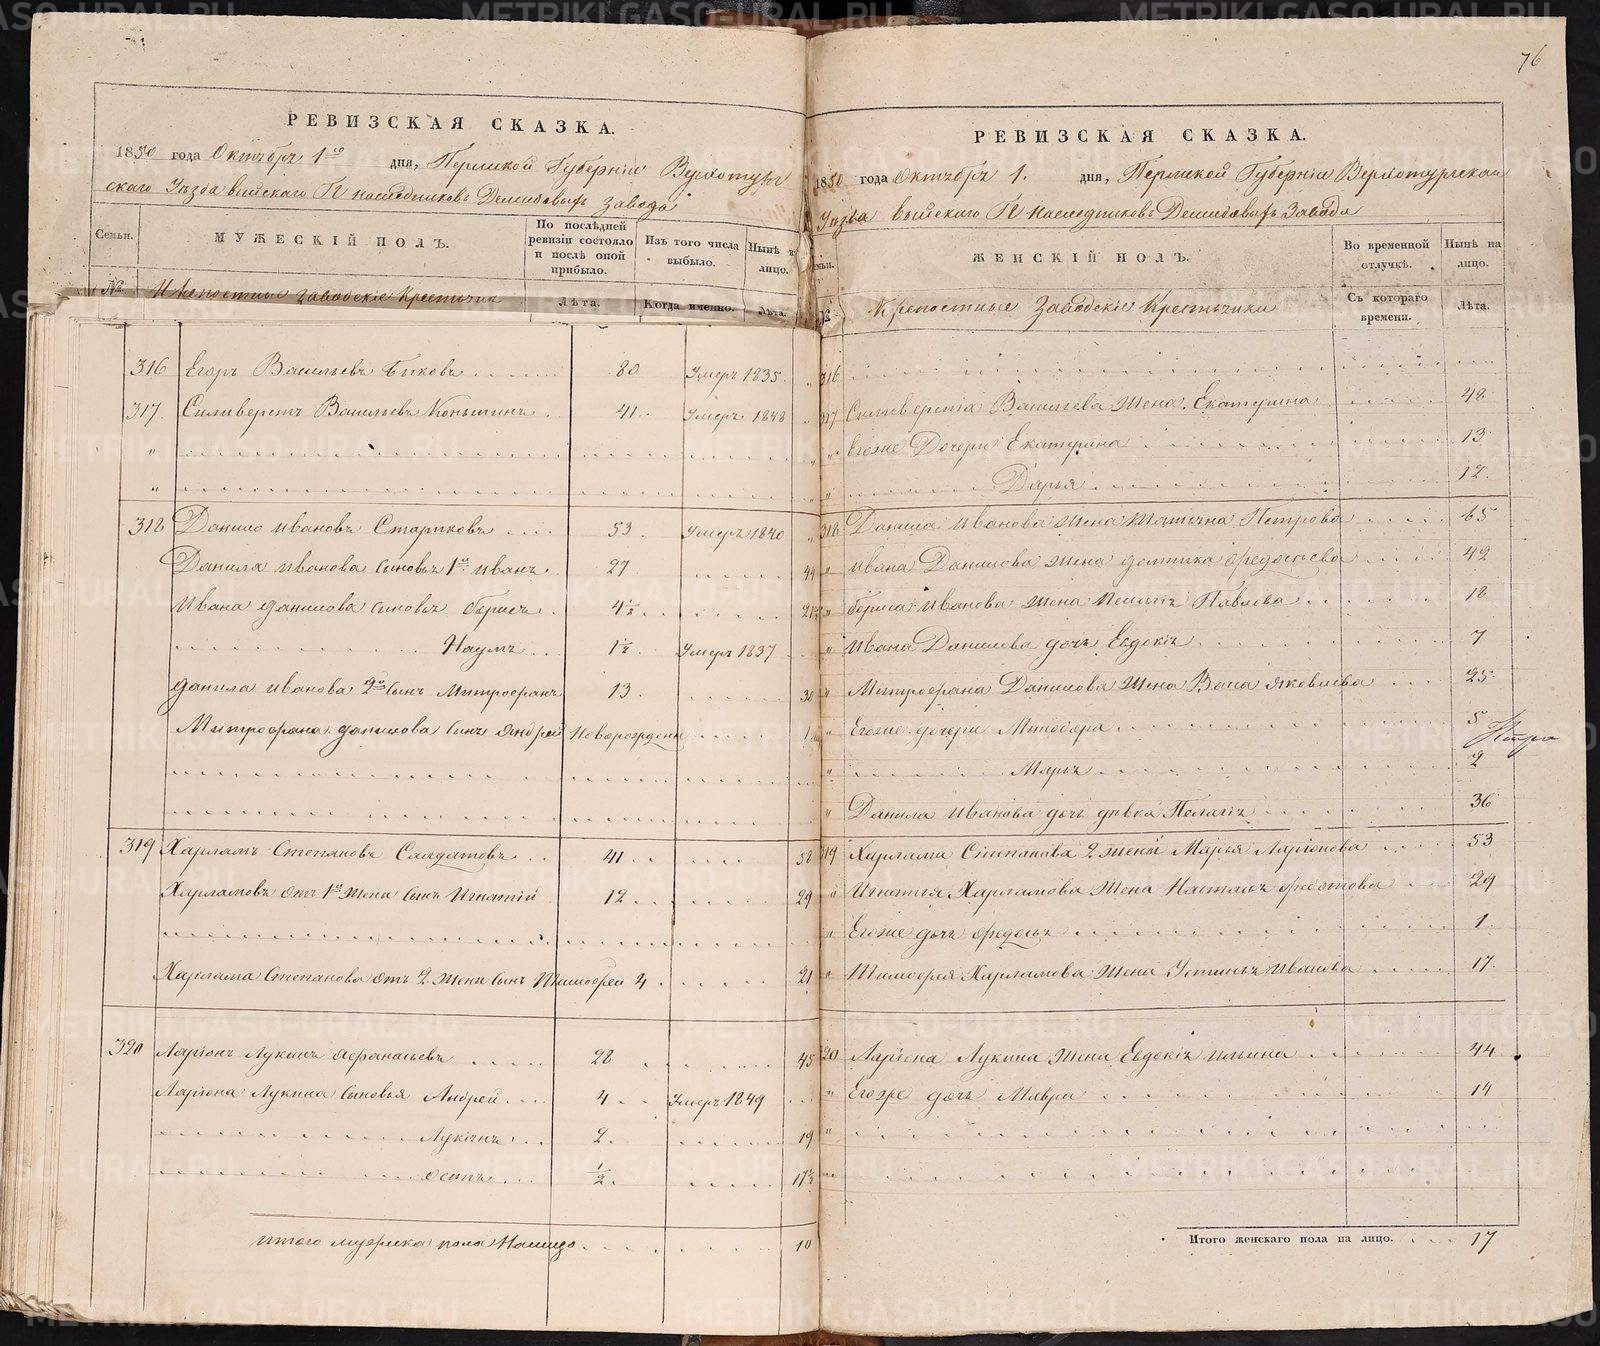 76
РЕВИЗСКАЯ СКАЗКА.
1850 года Октября 1го дня, Пермской Губернии Верхотурскаго Уѣзда Выйскаго Гг наследниковъ Демидовыхъ завода
Семьи. МУЖЕСКІЙ ПОЛЪ. По послѣдней ревизіи состояло и послѣ оной прибыло. Изъ того числа выбыло. Нынѣ на лицо.
№ Крепостные заводскіе Крестьяне Лѣта. Когда именно. Лѣта.
316 Егоръ Васильевъ Быковъ 80 Умеръ 1835
317 Силиверстъ Васильевъ Коньшинъ 41 Умеръ 1848
318 Данило Ивановъ Стариковъ 53 Умеръ 1840
Данила Иванова сыновья 1й Иванъ 27 44
Ивана Данилова сыновья Борисъ 4½ 21½
Наумъ 1½ Умеръ 1837
Данила Иванова 2й сынъ Митрофанъ 13 30
Митрофана Данилова сынъ Андрей Новорожденъ 1
319 Харламъ Степановъ Салдатовъ 41 58
Харламовъ отъ 1й жены сынъ Игнатій 12 29
Харлама Степанова отъ 2 жены сынъ Тимофей 4 21
320 Ларіонъ Лукинъ Афанасьевъ 28 45
Ларіона Лукина сыновья Андрей 4 Умеръ 1849
Лукіянъ 2 19
Осипъ ½ 17½
итого мужеска пола налицо 10
РЕВИЗСКАЯ СКАЗКА.
1850 года Октября 1. дня, Пермской Губерніи Верхотурскаго Уѣзда Выйскаго Гг наследниковъ Демидовыхъ Завода
ЖЕНСКІЙ ПОЛЪ. Во временной отлучкѣ. Нынѣ на лицо.
№ Крепостные Заводскіе Крестьянки Съ котораго времени. Лѣта.
316
317 Силиверста Васильева жена Екатерина 48
Егоже Дочери Екатерина 13
Дарья 12
318 Данила Иванова жена Татьяна Петрова 65
Ивана Данилова жена Домника Федосеева 42
Бориса Иванова жена Пелагія Павлова 18
Ивана Данилова дочь Евдокія 7
Митрофана Данилова жена Васа Яковлева 25
Егоже дочери 5
Марья 2
Данила Иванова дочь девка Пелагія 36
319 Харлама Степанова 2 жены Марья Ларіонова 53
Игнатья Харламова жена Настасья 29
Егоже дочь Федосья 1
Тимофея Харламова жена Устинья Иванова 17
320 Ларіона Лукина жена Евдокія Ильина 44
Егоже дочь Мавра 14
Итого женскаго пола на лицо. 17
METRIKI.GASO-URAL.RU